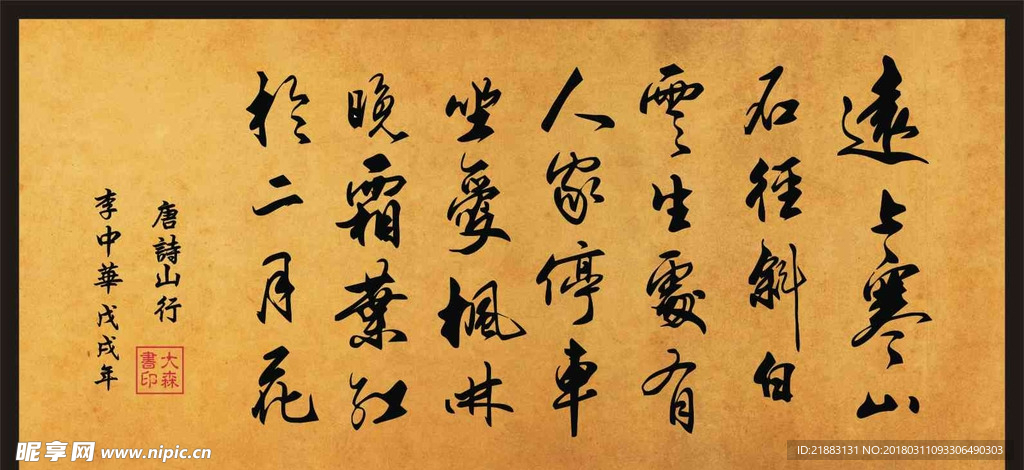 遠上寒山
石徑斜白
雲生處有
人家停車
坐愛楓林
晚霜葉紅
於二月花
唐詩山行
李中華戊戌年
大森
書印
昵享网 www.nipic.cn
ID:21883131 NO:20180311093306490303